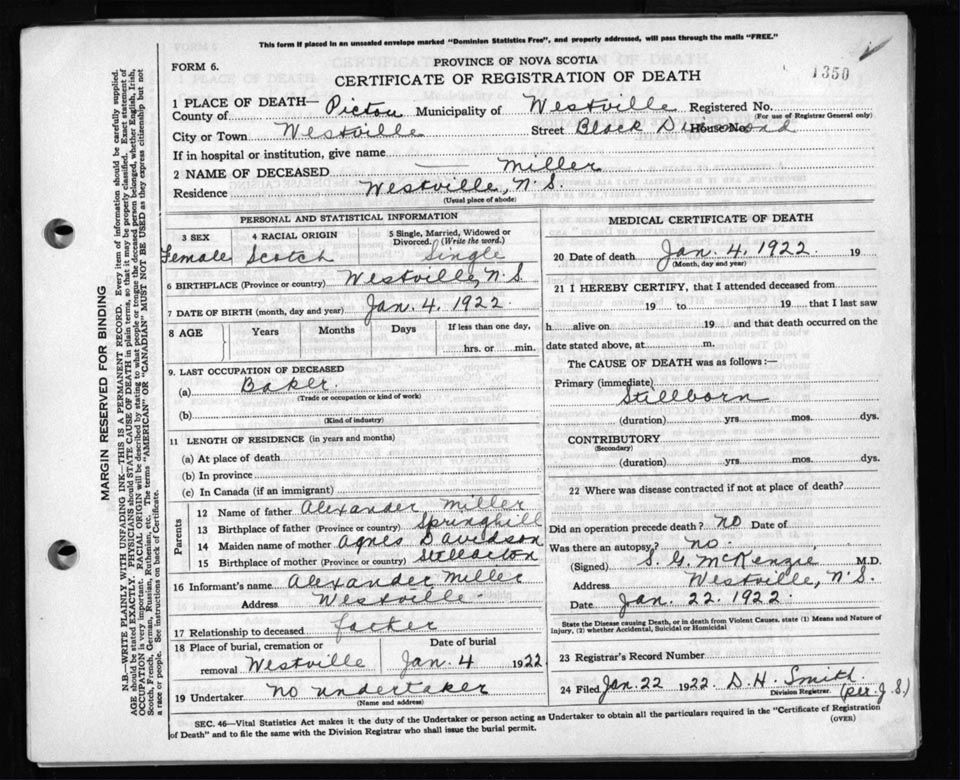 This form if placed in an unsealed envelope marked "Dominion Statistics Free", and properly addressed, will pass through the mails "FREE."
FORM 6.
PROVINCE OF NOVA SCOTIA
CERTIFICATE OF REGISTRATION OF DEATH
1350
1 PLACE OF DEATH— County of Pictou Municipality of Westville Registered No.
(For use of Registrar General only)
City or Town Westville Street Black Diamond House No.
If in hospital or institution, give name
2 NAME OF DECEASED —— Miller
Residence Westville, N.S.
(Usual place of abode)
PERSONAL AND STATISTICAL INFORMATION
3 SEX Female
4 RACIAL ORIGIN Scotch
5 Single, Married, Widowed or Divorced. (Write the word.) Single
6 BIRTHPLACE (Province or country) Westville, N.S.
7 DATE OF BIRTH (month, day and year) Jan. 4. 1922.
8 AGE Years Months Days If less than one day, hrs. or min.
9. LAST OCCUPATION OF DECEASED
(a) Baker.
(Trade or occupation or kind of work)
(b)
(Kind of industry)
11 LENGTH OF RESIDENCE (in years and months)
(a) At place of death
(b) In province
(c) In Canada (if an immigrant)
Parents
12 Name of father Alexander Miller
13 Birthplace of father (Province or country) Springhill
14 Maiden name of mother Agnes Davidson
15 Birthplace of mother (Province or country) Stellarton
16 Informant's name Alexander Miller
Address Westville.
17 Relationship to deceased father
18 Place of burial, cremation or removal Westville Date of burial Jan. 4 1922
19 Undertaker no undertaker
(Name and address)
MEDICAL CERTIFICATE OF DEATH
20 Date of death Jan. 4. 1922. 19
(Month, day and year)
21 I HEREBY CERTIFY, that I attended deceased from
19 to 19 that I last saw
h alive on 19 and that death occurred on the
date stated above, at m.
The CAUSE OF DEATH was as follows:—
Primary (immediate) Stillborn
(duration) yrs. mos. dys.
CONTRIBUTORY
(Secondary)
(duration) yrs. mos. dys.
22 Where was disease contracted if not at place of death?
Did an operation precede death? no Date of
Was there an autopsy? no.
(Signed) S. G. McKenzie M.D.
Address Westville, N.S.
Date Jan. 22. 1922.
State the Disease causing Death, or in death from Violent Causes, state (1) Means and Nature of
Injury, (2) whether Accidental, Suicidal or Homicidal
23 Registrar's Record Number
24 Filed Jan 22 1922. D. H. Smith
Division Registrar. (per J. S.)
SEC. 46—Vital Statistics Act makes it the duty of the Undertaker or person acting as Undertaker to obtain all the particulars required in the "Certificate of Registration
of Death" and to file the same with the Division Registrar who shall issue the burial permit.
(OVER)
MARGIN RESERVED FOR BINDING
N.B.—WRITE PLAINLY WITH UNFADING INK—THIS IS A PERMANENT RECORD. Every item of information should be carefully supplied.
AGE should be stated EXACTLY. PHYSICIANS should STATE CAUSE OF DEATH in plain terms, so that it may be properly classified. Exact statement of
OCCUPATION is very important. RACIAL ORIGIN will be described by stating to what people or tongue the deceased person belonged, whether English, Irish,
Scotch, French, German, Russian, Ruthenian, etc. The terms "AMERICAN" OR "CANADIAN" MUST NOT BE USED as they express citizenship but not
a race or people. See instructions on back of Certificate.